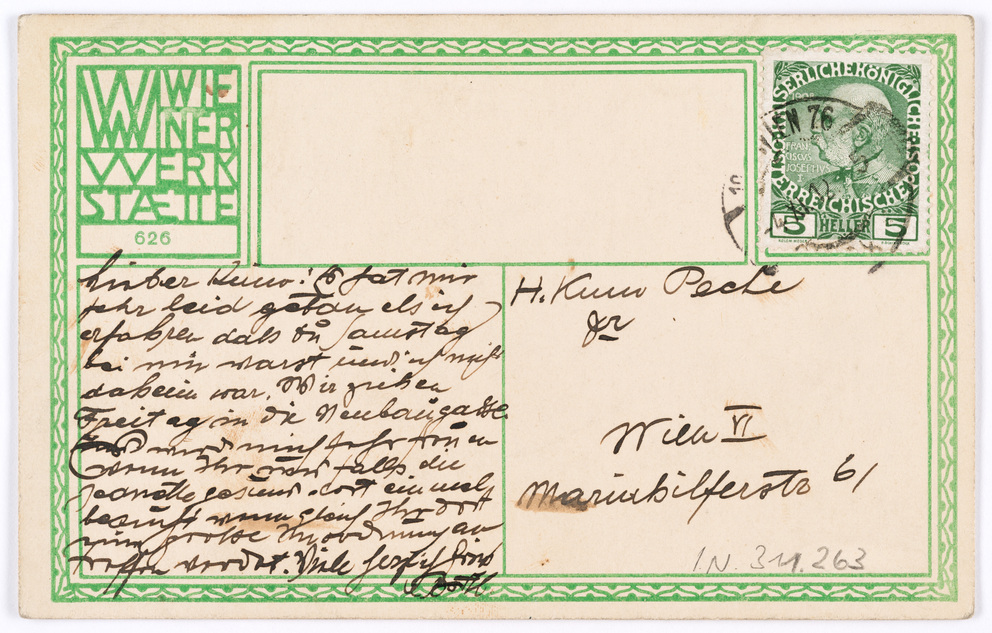 WIE
NER
WERK
STÆTTE
626
KAISERLICHE KÖNIGLICHE
ÖSTERREICHISCHE POST
FRAN
CISCVS
JOSEPHVS
I
5 HELLER 5
WIEN 76
Lieber Kuno! Es hat mir
sehr leid getan als ich
erfahren daß du Samstag
bei mir warst und ich nicht
daheim war. Wir ziehen
Freitag in die Neubaugasse
wird mich sehr freuen
wenn Ihr uns falls die
gesund dort einmal
besucht wenngleich Ihr dort
eine große Unordnung an
treffen werdet. Viele herzlich
H. Kuno Peche
Wien VI
Mariahilferstr 61
I.N. 311.263